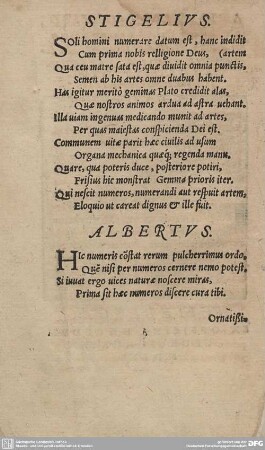 STIGELIVS.
Soli homini numerare datum est, hanc indidit
Cum prima nobis relligione Deus, (artem
Qua ceu matre sata est, quæ diuidit omnia punctis,
Semen ab his artes omne duabus habent.
Has igitur meritò geminas Plato credidit alas,
Quæ nostros animos ardua ad astra uehant.
Illa uiam ingenuas medicando munit ad artes,
Per quas maiestas conspicienda Dei est.
Communem uitæ parit hæc ciuilis ad usum
Organa mechanica quæq; regenda manu.
Quare, qua poteris duce, posteriore potiri,
Frisius hic monstrat Gemma prioris iter.
Qui nescit numeros, numerandi aut respuit artem,
Eloquio ut careat dignus & ille fuit.
ALBERTVS.
Hic numeris cõstat rerum pulcherrimus ordo,
Quẽ nisi per numeros cernere nemo potest.
Si iuuat ergo uices naturæ noscere miras,
Prima sit hæc numeros discere cura tibi.
Ornatißi-